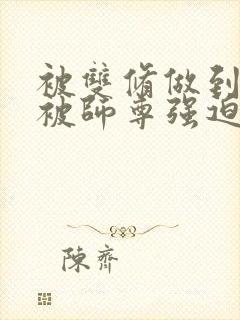 被雙脩做到
被師尊强迫
陳齊